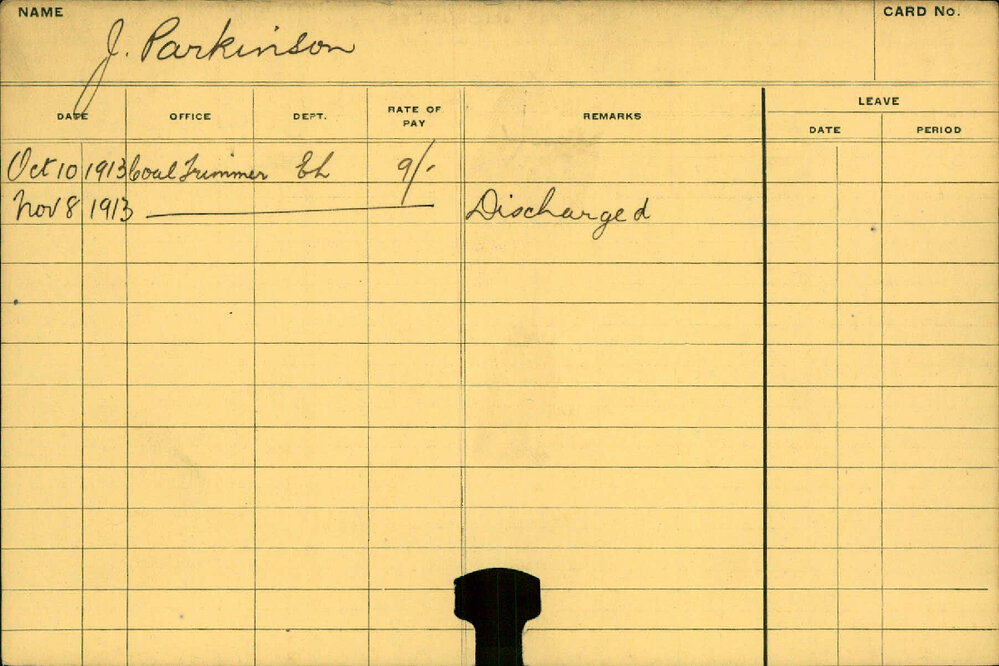 NAME
J. Parkinson
CARD No.
DATE OFFICE DEPT. RATE OF PAY REMARKS LEAVE
DATE PERIOD
Oct 10 1913 Coal Trimmer EL 9/-
Nov 8 1913 Discharged